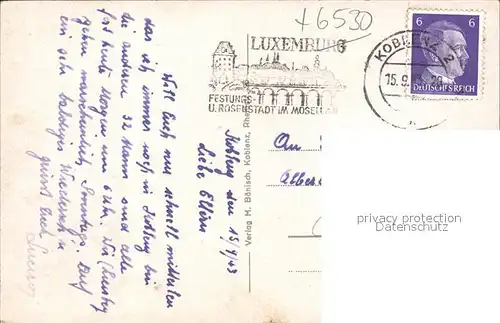 +6530
LUXEMBURG
FESTUNGS-
U. ROSENSTADT IM MOSELLAND
KOBLENZ 2
15.9.
6 6
DEUTSCHES REICH
Koblenz den 15/9/43
Liebe Eltern
Will Euch nur schnell mitteilen
das ich immer noch in Koblenz bin
die anderen 32 Mann sind alle
fort heute Morgen um 6 Uhr. Wir
gehen wahrscheinlich Sonntags. Auf
ein sehr baldiges Wiedersehn
grüsst Euch
Verlag M. Bönisch, Koblenz, Rhe
An
privacy protection
Datenschutz